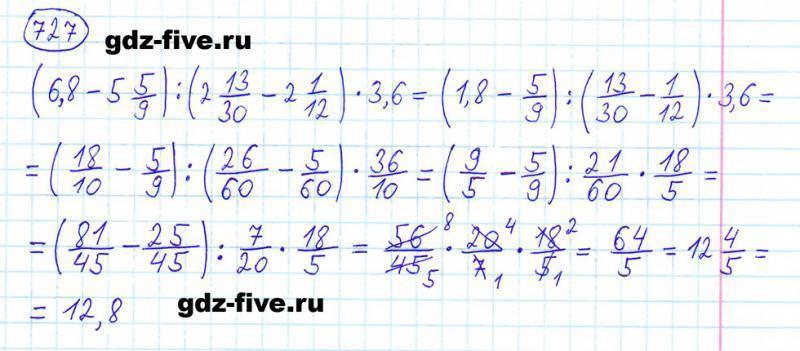 727
gdz-five.ru
(6,8 − 5 5/9) : (2 13/30 − 2 1/12) · 3,6 = (1,8 − 5/9) : (13/30 − 1/12) · 3,6 =
= (18/10 − 5/9) : (26/60 − 5/60) · 36/10 = (9/5 − 5/9) : 21/60 · 18/5 =
= (81/45 − 25/45) : 7/20 · 18/5 = 56 8/45 5 · 20 4/7 1 · 18 2/5 1 = 64/5 = 12 4/5 =
= 12,8
gdz-five.ru